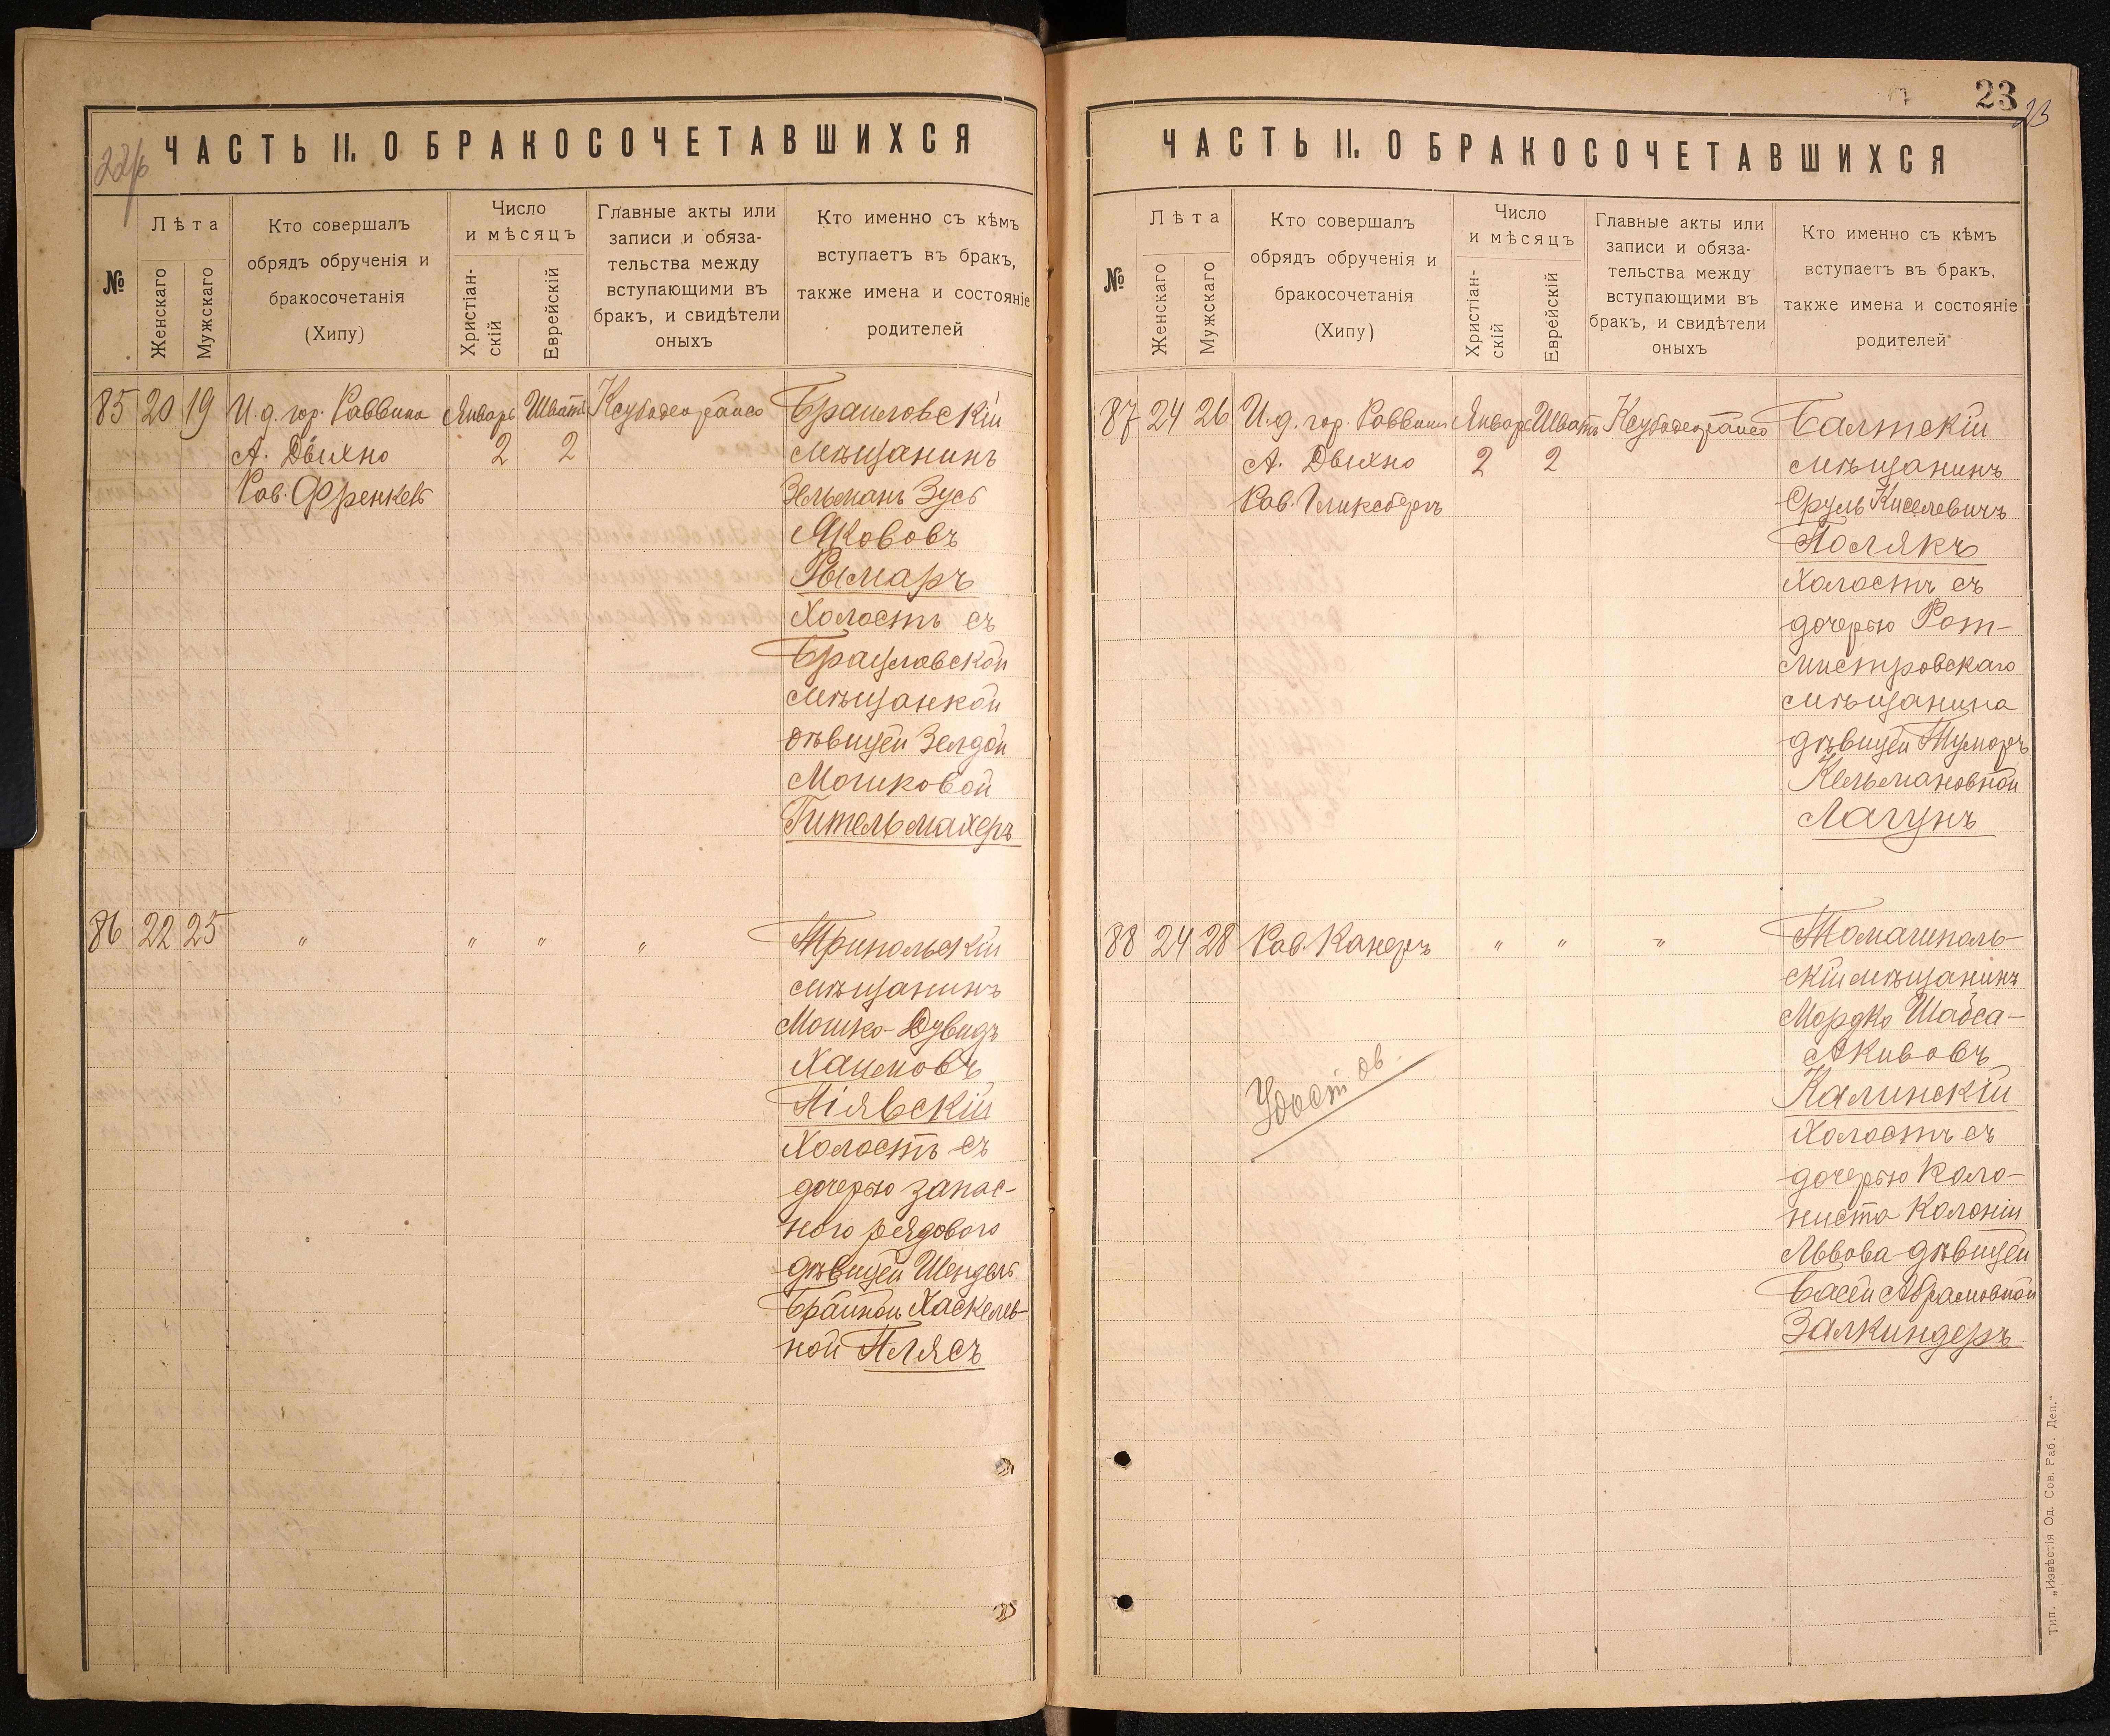 22/б
ЧАСТЬ II. О БРАКОСОЧЕТАВШИХСЯ
№
Лѣта
Женскаго
Мужскаго
Кто совершалъ
обрядъ обрученія и
бракосочетанія
(Хипу)
Число
и мѣсяцъ
Христіан-
скій
Еврейскій
Главные акты или
записи и обяза-
тельства между
вступающими въ
бракъ, и свидѣтели
оныхъ
Кто именно съ кѣмъ
вступаетъ въ бракъ,
также имена и состояніе
родителей
85 20 19 И.д. гор. Раввина Январь Шватъ
А. Двихно 2 2
Рав. Френкель
Браиловскій
мѣщанинъ
Зельманъ Зусь
Якововъ
Рымаръ
Холостъ съ
Брацлавской
мѣщанкой
дѣвицей Зелдой
Мошковой
Гительмахеръ
86 22 25 " " " "
Трипольскій
мѣщанинъ
Мошко-Дувидъ
Хаимовъ
Піявскій
Холостъ съ
дочерью запас-
ного рядового
дѣвицей Шендель
Брайной Хаскелев-
ной Плясъ
23
23
ЧАСТЬ II. О БРАКОСОЧЕТАВШИХСЯ
№
Лѣта
Женскаго
Мужскаго
Кто совершалъ
обрядъ обрученія и
бракосочетанія
(Хипу)
Число
и мѣсяцъ
Христіан-
скій
Еврейскій
Главные акты или
записи и обяза-
тельства между
вступающими въ
бракъ, и свидѣтели
оныхъ
Кто именно съ кѣмъ
вступаетъ въ бракъ,
также имена и состояніе
родителей
87 24 26 И.д. гор. Раввина Январь Шватъ
А. Двихно 2 2
Рав. Гликсбергъ
Балтскій
мѣщанинъ
Сруль Киселевичъ
Полякъ
Холостъ съ
дочерью Рот-
мистровскаго
мѣщанина
дѣвицей Тумеръ
Кельмановной
Лагунъ
88 24 28 Рав. Канеръ " " "
Удостов.
Томашполь-
скій мѣщанинъ
Мордко Шабса-
Акивовъ
Калинскій
Холостъ съ
дочерью коло-
ниста Колоніи
Львова дѣвицей
Басей Абрамовной
Залкиндеръ
Тип. „Извѣстія Од. Сов. Раб. Деп."